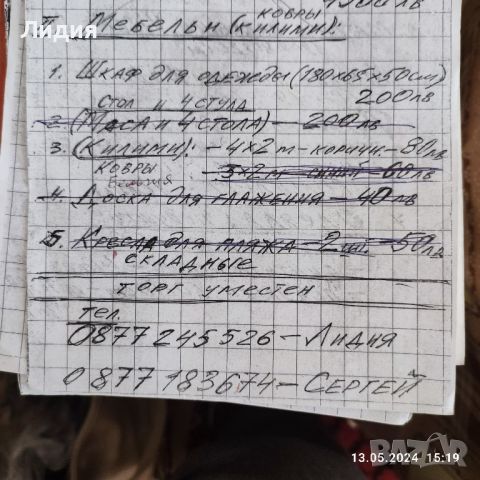 Лидия
КОВРЫ
II. МЕБЕЛЬ И (КИЛИМИ):
1. ШКАФ ДЛЯ ОДЕЖДЫ (180x65x50см)
200лв
СТОЛ И 4 СТУЛА
2. (МАСА И 4 СТОЛА) - 200лв
3. (КИЛИМИ): - 4x2 m - КОРИЧН - 80лв
КОВРЫ - 3x2 m СИНИЙ - 60лв
4. ДОСКА ДЛЯ ГЛАЖЕНИЯ - 40лв
5. КРЕСЛА ДЛЯ ПЛЯЖА - 2шт. - 50лв
СКЛАДНЫЕ
ТОРГ УМЕСТЕН
ТЕЛ.
0877245526 - ЛИДИЯ
0877183674 - СЕРГЕЙ
13.05.2024 15:19
BAZAR